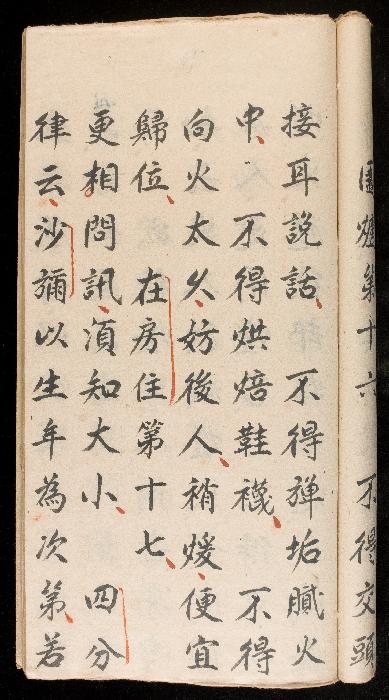 圍爐第十六　不得交頭
接耳說話　不得彈垢膩火
中　不得烘焙鞋襪　不得
向火太久妨後人稍煖便宜
歸位　在房住第十七
更相問訊湏知大小　四分
律云沙彌以生年為次第若